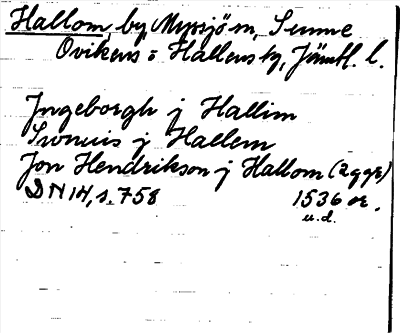 Hallom, by Myssjö sn, Sunne
Ovikens o Hallens tg, Jämtl. l.
Ingeborgh j Hallim
j Hallem
Jon Hendrikson j Hallom (2 ggr)
DN 14, s. 758 1536 or.
u.d.